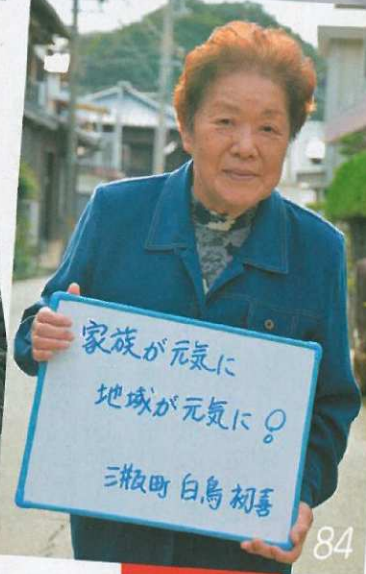 家族が元気に
地域が元気に！
三瓶町 白鳥初喜
84